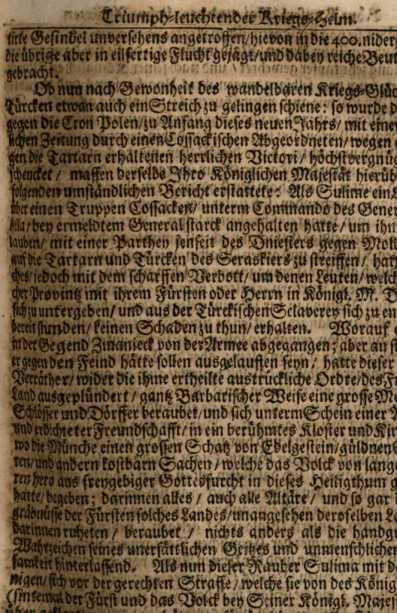 Triumph-leuchtender Kriegs-Helm.
Gesindel unversehens angetroffen/ hievon in die 400. nider
die übrige aber in eilfertige Flucht gejagt/ und dabey reiche Beut
gebracht.
Ob nun nach Gewonheit des wandelbaren Kriegs-Glüc
Türcken etwan auch ein Streich zu gelingen schiene: so wurde d
gegen die Cron Polen/ zu Anfang dieses neuen Jahrs/ mit eine
lichen Zeitung durch einen Cossackischen Abgeordneten/ wegen
gen die Tartarn erhaltenen herrlichen Victori/ höchstvergnüg
schencket/ massen derselbe Ihro Königlichen Majestät hierüb
folgenden umständlichen Bericht erstattete: Als Sulime ein
über einen Truppen Cossacken/ unterm Commando des Gener
bey ermeldtem General starck angehalten hatte/ um ihm
lauben/ mit einer Parthey jenseit des Dniesters gegen Mol
auf die Tartarn und Türcken des Seraskiers zu streiffen/ hat
ches/ jedoch mit dem scharffen Verbott/ um denen Leuten/ welch
cher Provintz mit ihrem Fürsten oder Herrn in Königl. M. D
sich zu untergeben/ und aus der Türckischen Sclaverey sich zu en
bereit stunden/ keinen Schaden zu thun/ erhalten. Worauf
in der Gegend Zwanieck von der Armee abgegangen; aber an st
er gegen den Feind hätte sollen ausgelauffen seyn/ hatte dieser
Verräther/ wider die ihme ertheilte austrückliche Ordre/ des F
Land ausgeplündert/ gantz Barbarischer Weise eine grosse Me
Schlösser und Dörffer beraubet/ und sich unterm Schein einer
und erdichteter Freundschafft/ in ein berühmtes Kloster und Kir
wo die Münche einen grossen Schatz von Edelgestein/ güldnen
ren/ und andern kostbarn Sachen/ welche das Volck von lang
ren hero aus freygebiger Gottesfurcht in dieses Heiligthum g
hatte/ begeben; darinnen alles/ auch alle Altäre/ und so gar
gräbnüsse der Fürsten solches Landes/ unangesehen deroselben L
darinnen ruheten/ beraubet/ nichts anders als die handg
Wahrzeichen seines unersättlichen Geitzes und unmenschlicher
samkeit hinterlassend. Als nun dieser Räuber Sulima mit d
nigen/ sich vor der gerechten Straffe/ welche sie von des König
(sintemal der Fürst und das Volck bey Seiner Königl. Majes